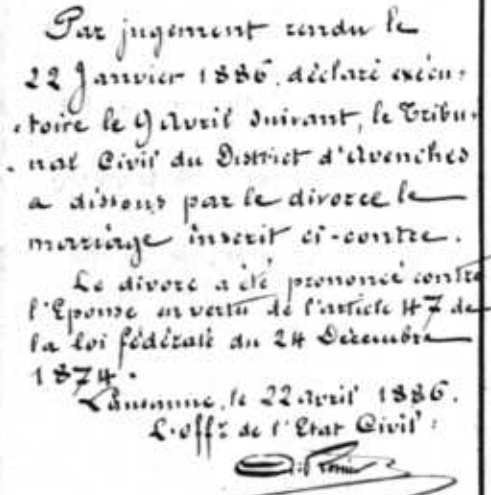 Par jugement rendu le
22 Janvier 1886, déclaré exécu-
toire le 9 Avril suivant, le Tribu-
nal Civil du District d'Avenches
a dissous par le divorce le
mariage inscrit ci-contre.
Le divorc a été prononcé contre
l'Epouse en vertu de l'article 47 de
la loi fédérale du 24 Décembre
1874.
Lausanne, le 22 avril 1886.
L'offr de l'Etat Civil :